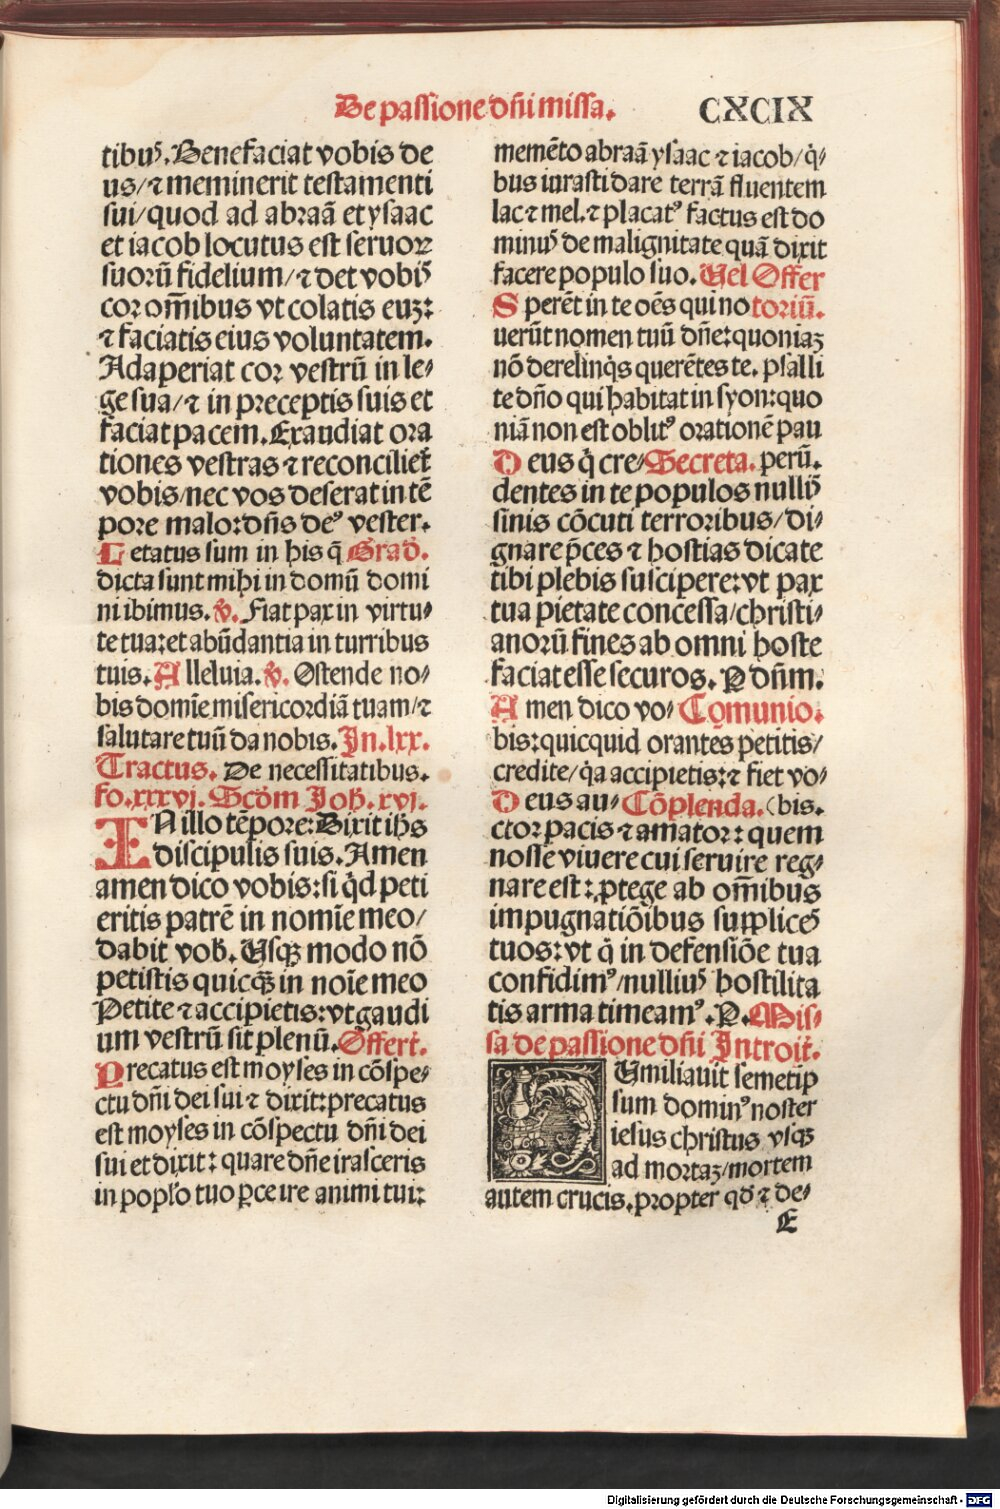 De passione dñi missa. CXCIX
tibus. Benefaciat vobis de
us/ ⁊ meminerit testamenti
sui/ quod ad abraã et ysaac
et iacob locutus est seruoꝝ
suorũ fidelium/ ⁊ det vobis
cor om̃ibus vt colatis euꝫ:
⁊ faciatis eius voluntatem.
Adaperiat cor vestrũ in le⸗
ge sua/ ⁊ in preceptis suis et
faciat pacem. Exaudiat ora
tiones vestras ⁊ reconcilieť
vobis/ nec vos deserat in tẽ
pore malo: dñs deꝰ vester.
Letatus sum in his q̃ Grad̃.
dicta sunt mihi in domũ domi
ni ibimus. ꝟ. Fiat pax in virtu⸗
te tua: et abũdantia in turribus
tuis. Alleluia. ꝟ. Ostende no⸗
bis domĩe misericordiã tuam/ ⁊
salutare tuũ da nobis. In. lxx.
Tractus. De necessitatibus.
fo. xxxvi. Scðm Joh. xvi.
IN illo tẽpore: Dixit ihs
discipulis suis. Amen
amen dico vobis: si q̇d peti
eritis patrẽ in nomĩe meo/
dabit vob̃. Usqꝫ modo nõ
petistis quicq̃ꝫ in noĩe meo
Petite ⁊ accipietis: vt gaudi
um vestrũ sit plenũ. Offert.
Precatus est moyses in cõspe⸗
ctu dñi dei sui ⁊ dixit: precatus
est moyses in cõspectu dñi dei
sui et dixit: quare dñe irasceris
in poplo tuo ꝑce ire animi tui:
memẽto abraã ysaac ⁊ iacob/ q̇⸗
bus iurasti dare terrã fluentem
lac ⁊ mel. ⁊ placatꝰ factus est do
minus de malignitate quã dixit
facere populo suo. Uel Offer
Sperẽt in te oẽs qui no toriũ.
uerũt nomen tuũ dñe: quoniaꝫ
nõ derelinq̇s querẽtes te. psalli
te dño qui habitat in syon: quo
niã non est oblitꝰ orationẽ pau
Deus q̇ cre⸗ Secreta. perũ.
dentes in te populos nullis
sinis cõcuti terroribus/ di⸗
gnare p̃ces ⁊ hostias dicate
tibi plebis suscipere: vt pax
tua pietate concessa/ christi⸗
anorũ fines ab omni hoste
faciat esse securos. P dñm.
Amen dico vo⸗ Cõmunio.
bis: quicquid orantes petitis/
credite/ q̇a accipietis: ⁊ fiet vo⸗
Deus au⸗ Cõplenda. (bis.
ctor pacis ⁊ amator: quem
nosse viuere cui seruire reg⸗
nare est: ꝓtege ab om̃ibus
impugnatiõibus supplices
tuos: vt q̇ in defensiõe tua
confidimꝰ/ nullius hostilita
tis arma timeamꝰ. P. Mis⸗
sa de passione dñi Introit.
Umiliauit semetip̃
sum dominꝰ noster
iesus christus vsqꝫ
ad mortaꝫ/ mortem
autem crucis. propter qð ⁊ de⸗
E
Digitalisierung gefördert durch die Deutsche Forschungsgemeinschaft - DFG